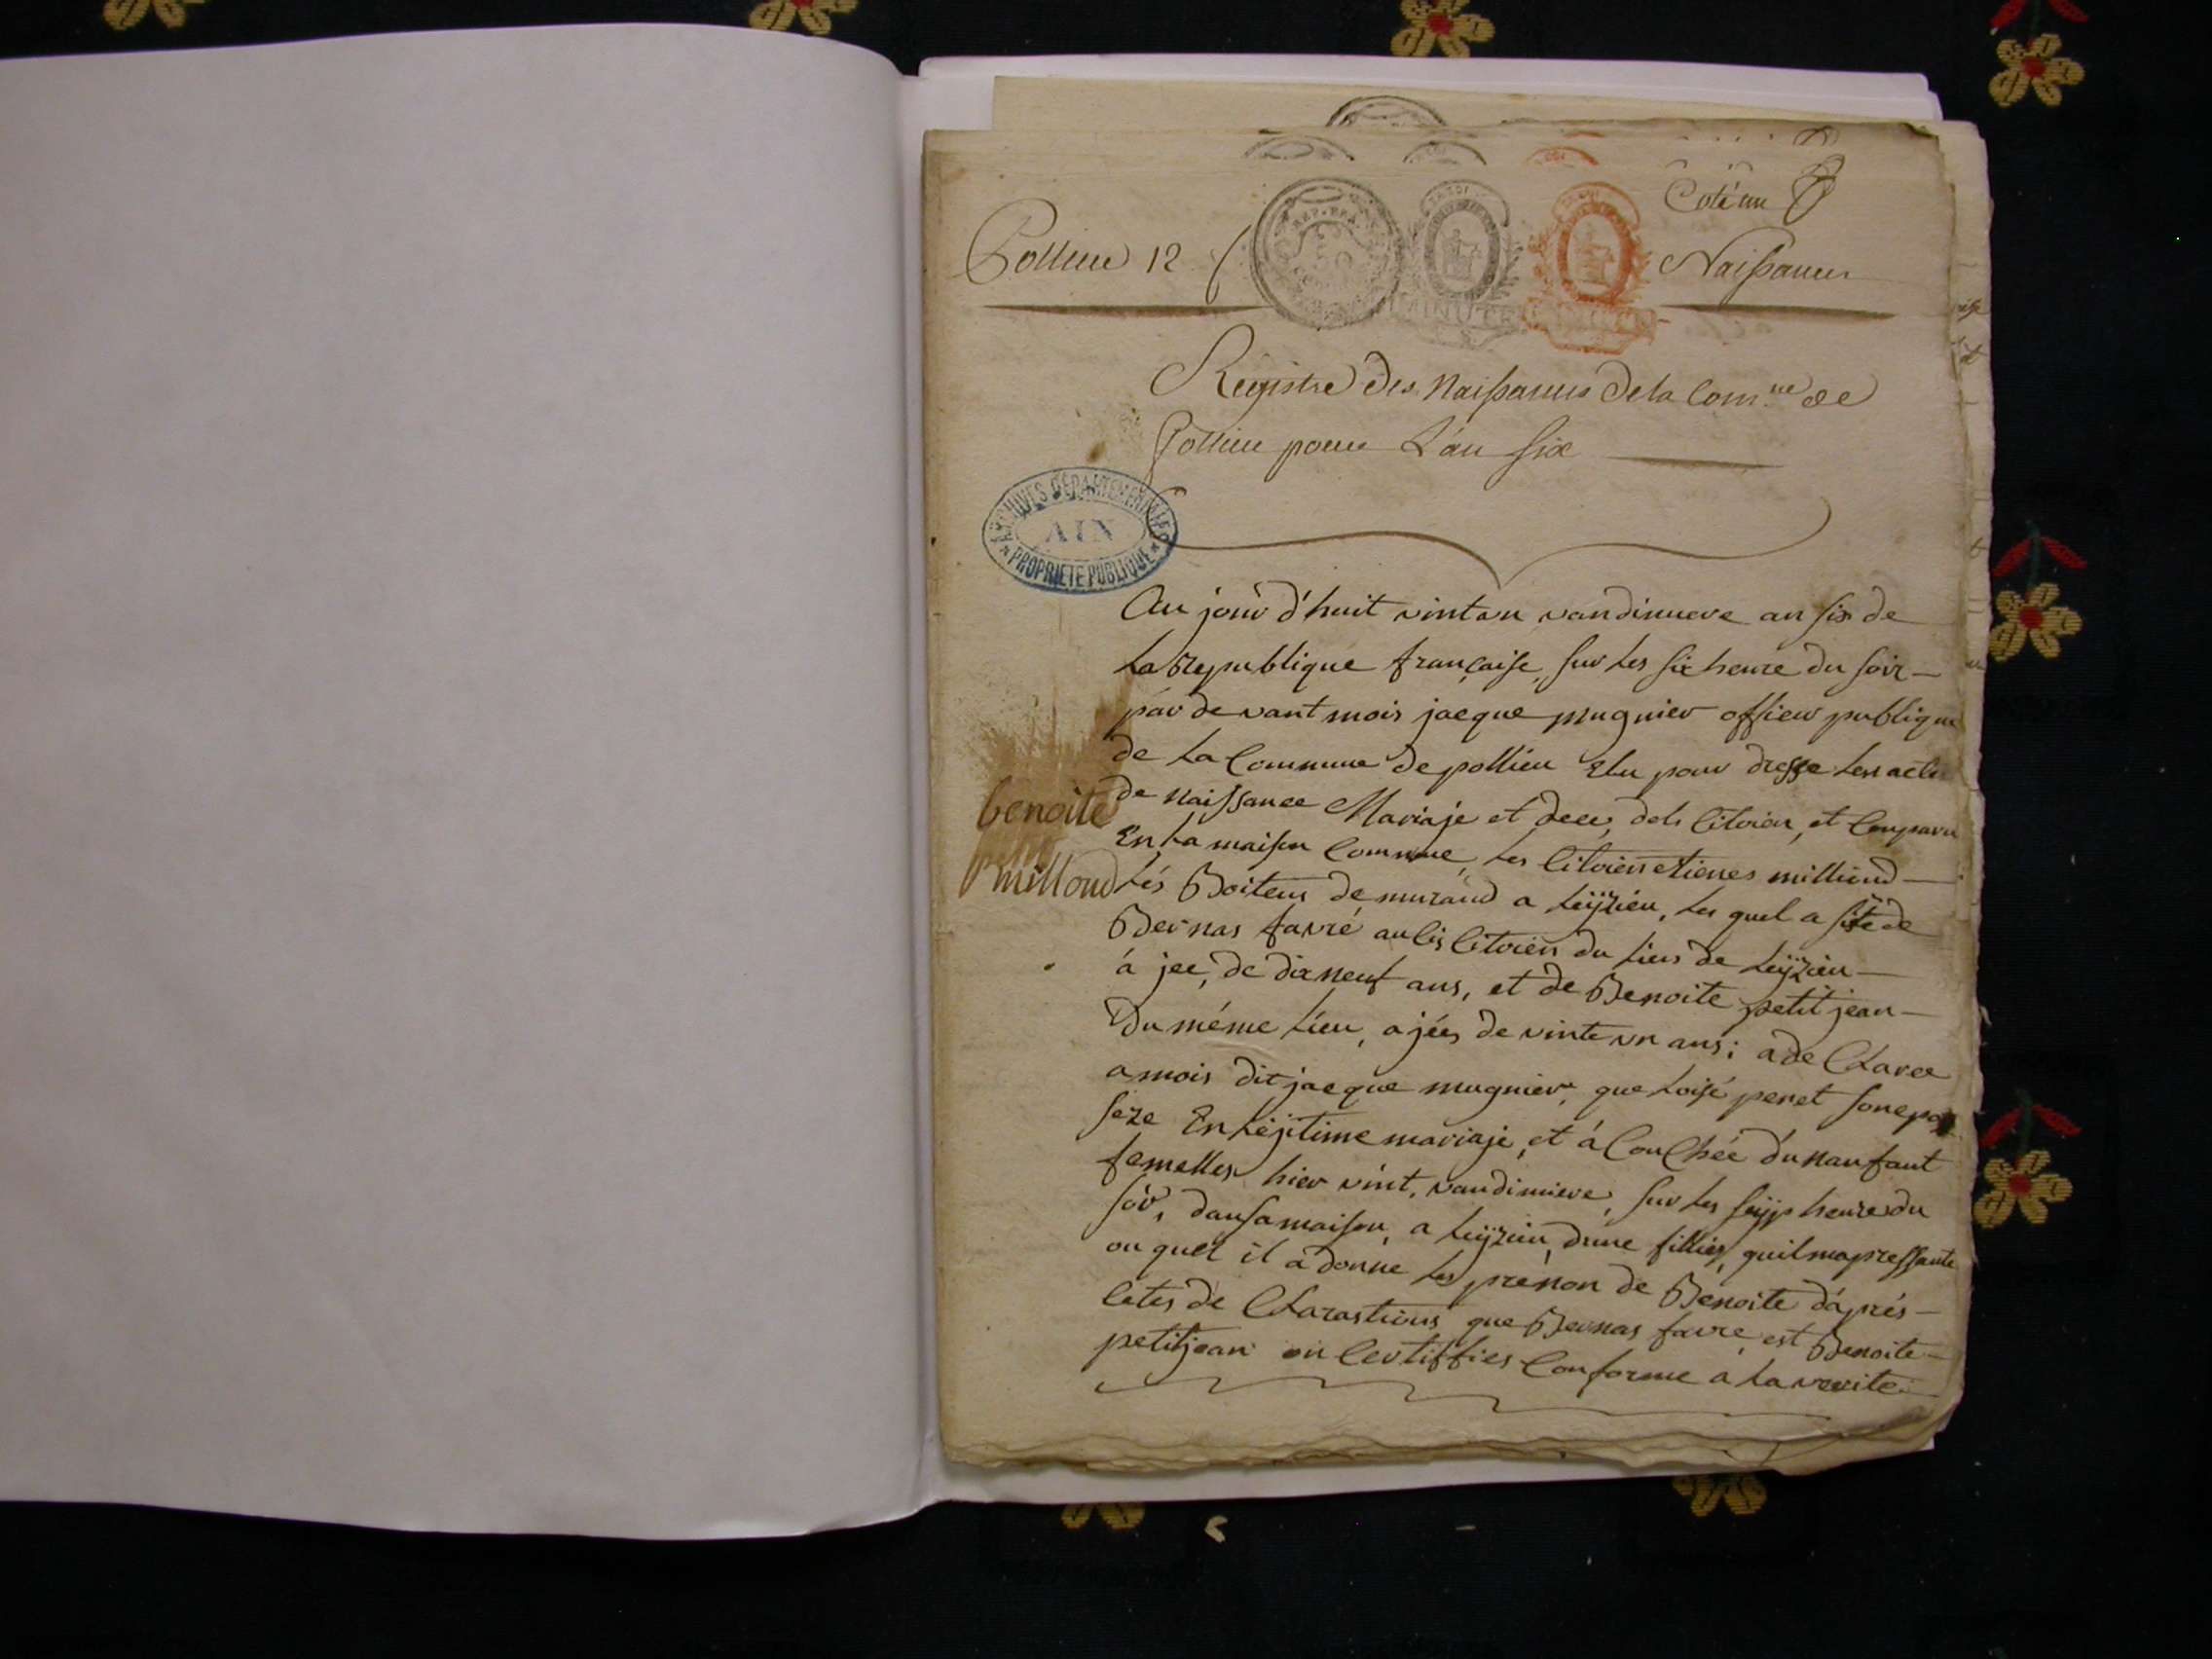 Coté un
Pollieu 12 f
REP. FRA.
MINUTE
Naissances
Registre des Naissances de la Com.ne de
Pollieu pour L'an Six
ARCHIVES DÉPARTEMENTALES
AIN
PROPRIÉTÉ PUBLIQUE
Au jour d'huit vint un vandimiere an six de
La Republique française, sur les six heure du soir
par de vant mois jacque mugnier officier publique
de La Commune de pollieu Elu pour dresse Les acte
de naissance Mariaje et dece, dels Citoien, et Comparu
benoite
En La maison Commune, Les Citoien etienes milliond
millond
Lés Boiteus de murand a Leÿzieu, Les quel a sité de
Bernas favré aulis Citoien du Lieus de Leÿzieu
á jee, de dix neuf ans, et de Benoite petit jean
Du méme Lieu, a jées de vinte un ans; a de Claree
a mois dit jacque mugnier, que Loise penet son epou
seze En Léjitime mariaje, et á Couchée d'unanfant
femelles hier vint, vandimiere, sur Les heure du
soir, dansa maison, a Leÿzieu, dune filliés, quil ma pressante
ou quel il a donne Les prénon de Benoite d'áprés
cetes de Clarastions que Bernas favre est Benoite
petitjean on Certiffies Conforme a La verite